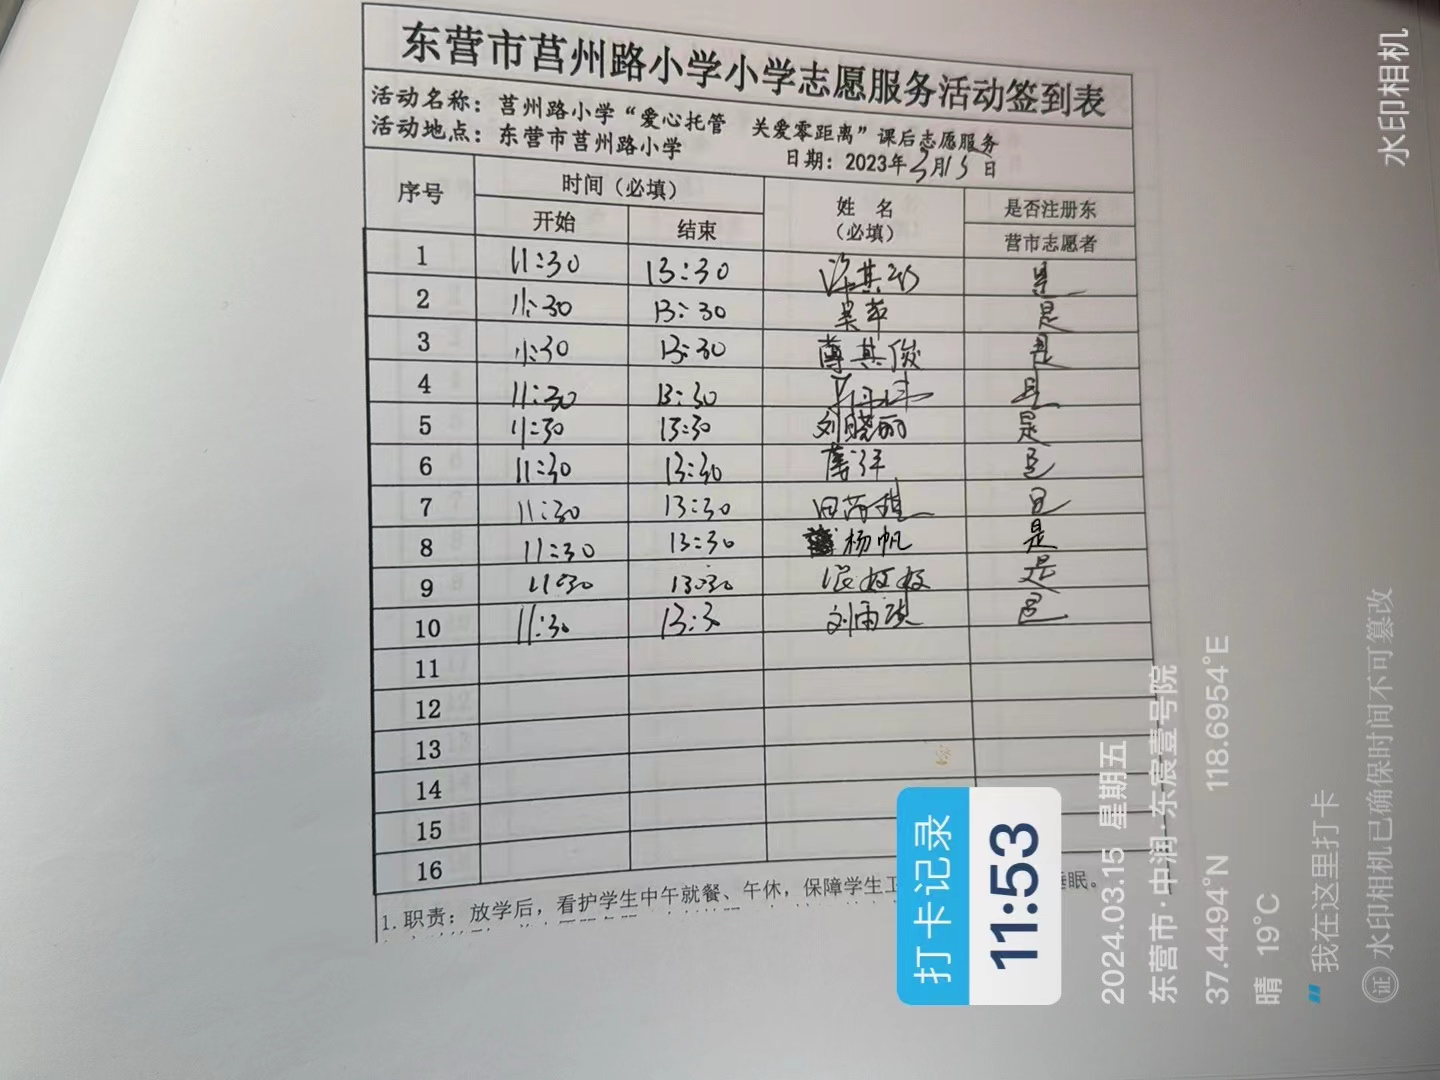 东营市莒州路小学小学志愿服务活动签到表
活动名称：莒州路小学“爱心托管 关爱零距离”课后志愿服务
活动地点：东营市莒州路小学 日期：2023年3月15日
序号 时间（必填） 姓 名 是否注册东
开始 结束 （必填） 营市志愿者
1 11:30 13:30 是
2 11:30 13:30 吴苹 是
3 11:30 13:30 薄其俊 是
4 11:30 13:30 是
5 11:30 13:30 刘晓丽 是
6 11:30 13:30 是
7 11:30 13:30 是
8 11:30 13:30 杨帆 是
9 11:30 13:30 是
10 11:30 13:30 是
11
12
13
14
15
16
1.职责：放学后，看护学生中午就餐、午休，保障学生 睡眠。
打卡记录
11:53
2024.03.15 星期五
东营市·中润·东宸壹号院
37.4494°N 118.6954°E
晴 19℃
我在这里打卡
证 水印相机已确保时间不可篡改
水印相机